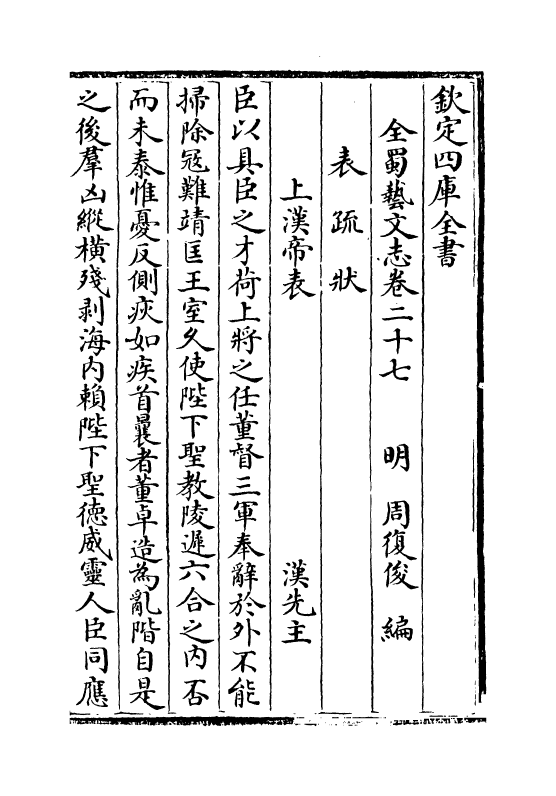 欽定四庫全書
全蜀藝文志卷二十七　明　周復俊　編
表疏狀
上漢帝表　漢先主
臣以具臣之才荷上將之任董督三軍奉辭於外不能
掃除冦難靖匡王室久使陛下聖教陵遲六合之内否
而未泰惟憂反側疢如疾首曩者董卓造為亂階自是
之後羣凶縱橫殘剥海内賴陛下聖徳威靈人臣同應